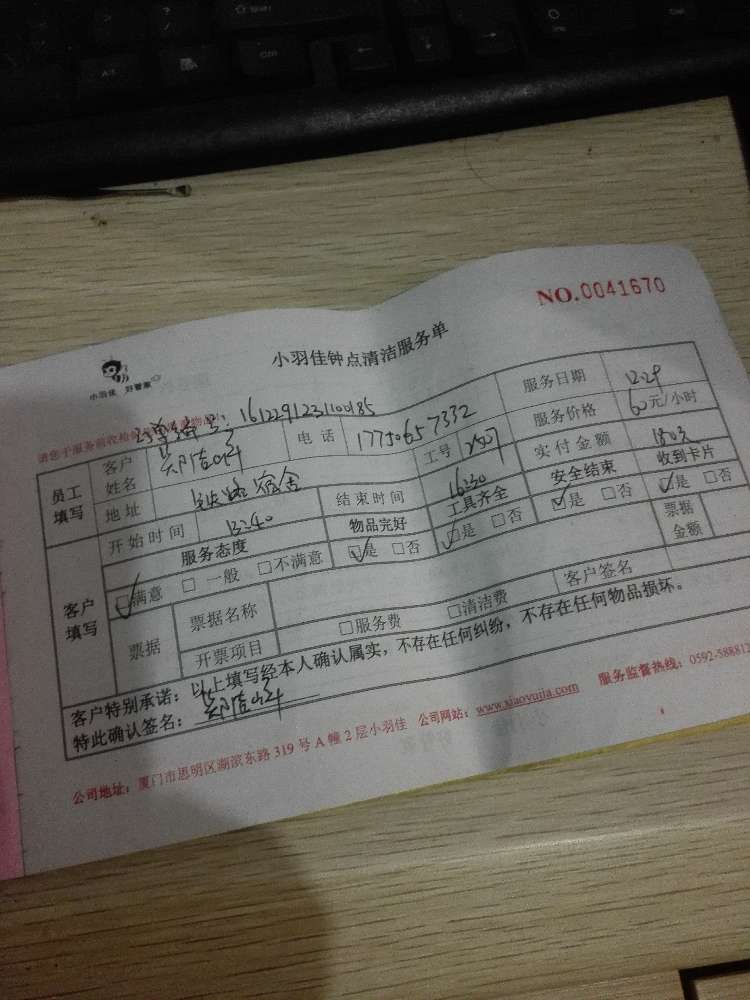 NO.0041670
小羽佳 好管家
小羽佳钟点清洁服务单
订单编号：1612291231100185
员工填写 客户姓名 电话 17750657332 服务日期 12.29
地址 铁路宿舍 工号 服务价格 60元/小时
开始时间 13:40 结束时间 16:30 实付金额
客户填写 服务态度 物品完好 工具齐全 安全结束 收到卡片
☑满意 □一般 □不满意 ☑是 □否 ☑是 □否 ☑是 □否 ☑是 □否
票据 票据名称 客户签名 票据金额
开票项目 □服务费 □清洁费
客户特别承诺：以上填写经本人确认属实，不存在任何纠纷，不存在任何物品损坏。
特此确认签名：
公司地址：厦门市思明区湖滨东路 319 号 A 幢 2 层小羽佳 公司网站：www.xiaoyujia.com 服务监督热线：0592-588812